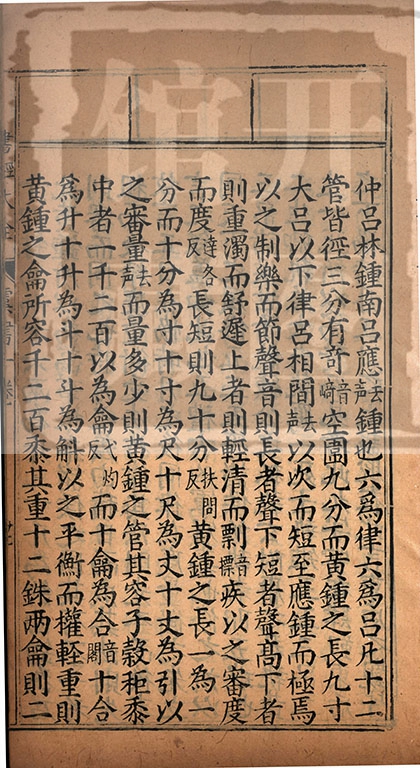 仲呂林鍾南呂應去声鍾也六爲律六爲呂凡十二
管皆徑三分有竒音﨑空圍九分而黄鍾之長九寸
大呂以下律呂相間去声以次而短至應鍾而極焉
以之制樂而節聲音則長者聲下短者聲髙下者
則重濁而舒遲上者則輕清而剽音摽疾以之審度
而度達各反長短則九十分扶問反黄鍾之長一為一
分而十分為寸十寸為尺十尺為丈十丈為引以
之審量去声而量多少則黄鍾之管其容子榖秬黍
中者一千二百以為龠弋灼反而十龠為合音閤十合
爲升十升為斗十斗為斛以之平衡而權輕重則
黄鍾之龠所容千二百黍其重十二銖两龠則二